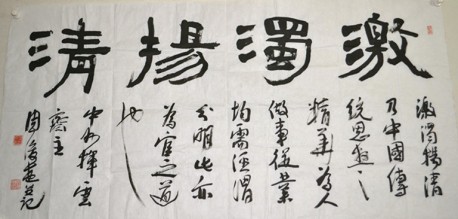 激濁揚清
激濁揚清
乃中國傳
統思想之
精華為人
做事從業
均需涇渭
分明此亦
為官之道
也
中州揮雲
齋主
周俊杰記